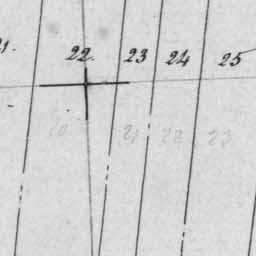 21. 22. 23 24 25
20 21 22 23